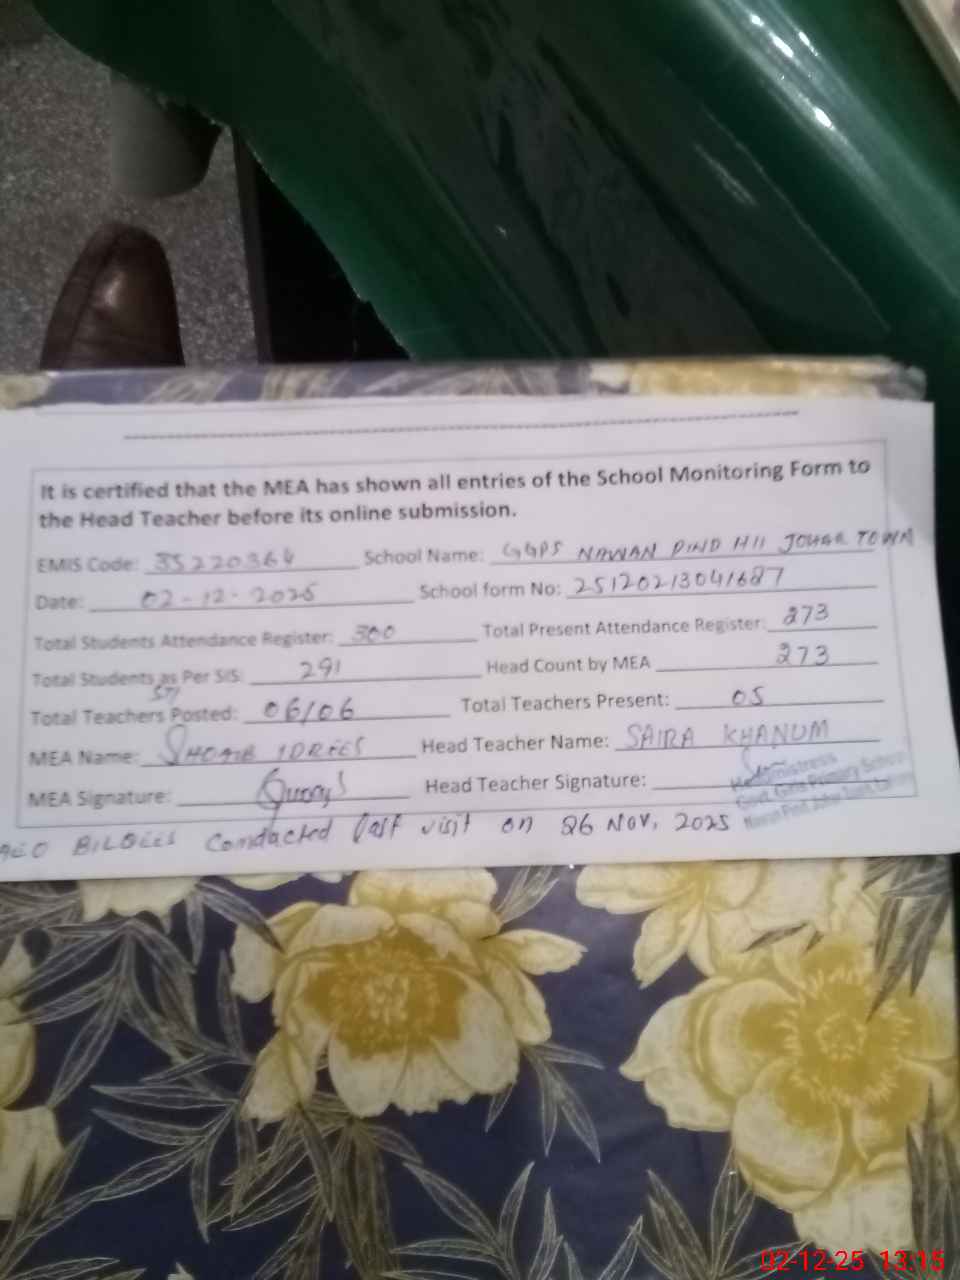 It is certified that the MEA has shown all entries of the School Monitoring Form to
the Head Teacher before its online submission.
EMIS Code: 35220364 School Name: GGPS NAWAN PIND H11 JOHAR TOWN
Date: 02-12-2025 School form No: 25120213041687
Total Students Attendance Register: 300 Total Present Attendance Register: 273
Total Students as Per SIS: 291 Head Count by MEA 273
Total Teachers Posted: 06/06 Total Teachers Present: 05
MEA Name: SHOAIB IDREES Head Teacher Name: SAIRA KHANUM
MEA Signature: Head Teacher Signature:
Headmistress
Govt. Girls Primary School
Nawan Pind Johar Town
AEO BILQEES Conducted last visit on 26 Nov, 2025
02-12-25 13:15